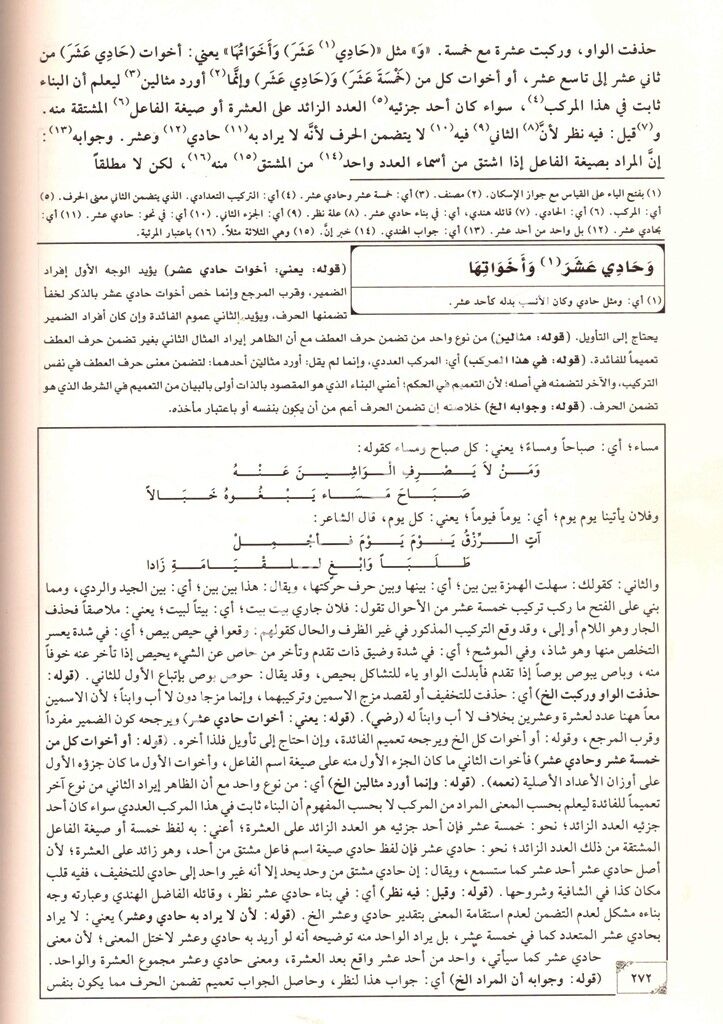 حذفت الواو، وركبت عشرة مع خمسة. «وَ» مثل «(حَادِي(١) عَشَرَ) وَأَخَوَاتُهَا» يعني: أخوات (حَادِي عَشَرَ) من
ثاني عشر إلى تاسع عشر، أو أخوات كل من (خَمْسَةَ عَشَرَ) وَ(حَادِي عَشَرَ) وإنَّمَا(٢) أورد مثالين(٣) ليعلم أن البناء
ثابت في هذا المركب(٤)، سواء كان أحد جزئيه(٥) العدد الزائد على العشرة أو صيغة الفاعل(٦) المشتقة منه.
و(٧)قيل: فيه نظر لأنَّ(٨) الثاني(٩) فيه(١٠) لا يتضمن الحرف لأنَّه لا يراد به(١١) حادي(١٢) وعشر. وجوابه(١٣):
إنَّ المراد بصيغة الفاعل إذا اشتق من أسماء العدد واحد(١٤) من المشتق(١٥) منه(١٦)، لكن لا مطلقاً
(١) بفتح الياء على القياس مع جواز الإسكان. (٢) مصنف. (٣) أي: خمسة عشر وحادي عشر. (٤) أي: التركيب التعدادي. الذي يتضمن الثاني معنى الحرف. (٥)
أي: المركب. (٦) أي: الحادي. (٧) قائله هندي، أي: في بناء حادي عشر. (٨) علة نظر. (٩) أي: الجزء الثاني. (١٠) أي: في نحو: حادي عشر. (١١) أي:
بحادي عشر. (١٢) بل واحد من أحد عشر. (١٣) أي: جواب الهندي. (١٤) خبر إنَّ. (١٥) وهي الثلاثة مثلاً. (١٦) باعتبار المرتبة.
وَحَادِي عَشَرَ(١) وَأَخَوَاتِهَا
(١) أي: ومثل حادي وكان الأنسب بدله كأحد عشر.
(قوله: يعني: أخوات حادي عشر) يؤيد الوجه الأول إفراد
الضمير، وقرب المرجع وإنما خص أخوات حادي عشر بالذكر لخفأ
تضمنها الحرف، ويؤيد الثاني عموم الفائدة وإن كان أفراد الضمير
يحتاج إلى التأويل. (قوله: مثالين) من نوع واحد من تضمن حرف العطف مع أن الظاهر إيراد المثال الثاني بغير تضمن حرف العطف
تعميماً للفائدة. (قوله: في هذا المركب) أي: المركب العددي، وإنما لم يقل: أورد مثالين أحدهما: لتضمن معنى حرف العطف في نفس
التركيب، والآخر لتضمنه في أصله؛ لأن التعميم في الحكم؛ أعني البناء الذي هو المقصود بالذات أولى بالبيان من التعميم في الشرط الذي هو
تضمن الحرف. (قوله: وجوابه الخ) خلاصته إن تضمن الحرف أعم من أن يكون بنفسه أو باعتبار مأخذه.
مساء؛ أي: صباحاً ومساءً؛ يعني: كل صباح ومساء كقوله:
وَمَنْ لاَ يَصْرِفِ الْوَاشِينَ عَنْهُ
صَبَاحَ مَسَاء يَبْغُوهُ خَبَالاً
وفلان يأتينا يوم يوم؛ أي: يوماً فيوماً؛ يعني: كل يوم، قال الشاعر:
آتِ الرِّزْقُ يَوْمَ يَوْمَ فَأَجْمِلْ
طَلَباً وَابْغِ لِلْقِيَامَةِ زَادا
والثاني: كقولك: سهلت الهمزة بين بين؛ أي: بينها وبين حرف حركتها، ويقال: هذا بين بين؛ أي: بين الجيد والردي، ومما
بني على الفتح ما ركب تركيب خمسة عشر من الأحوال تقول: فلان جاري بيت بيت؛ أي: بيتاً لبيت؛ يعني: ملاصقاً فحذف
الجار وهو اللام أو إلى، وقد وقع التركيب المذكور في غير الظرف والحال كقولهم: وقعوا في حيص بيص؛ أي: في شدة يعسر
التخلص منها وهو شاذ، وفي الموشح؛ أي: في شدة وضيق ذات تقدم وتأخر من حاص عن الشيء يحيص إذا تأخر عنه خوفاً
منه، وباص يبوص بوصاً إذا تقدم فأبدلت الواو ياء للتشاكل بحيص، وقد يقال: حوص بوص بإتباع الأول للثاني. (قوله:
حذفت الواو وركبت الخ) أي: حذفت للتخفيف أو لقصد مزج الاسمين وتركيبهما، وإنما مزجا دون لا أب وابناً؛ لأن الاسمين
معاً ههنا عدد لعشرة وعشرين بخلاف لا أب وابناً له (رضي). (قوله: يعني: أخوات حادي عشر) ويرجحه كون الضمير مفرداً
وقرب المرجع، وقوله: أو أخوات كل الخ ويرجحه تعميم الفائدة، وإن احتاج إلى تأويل فلذا أخره. (قوله: أو أخوات كل من
خمسة عشر وحادي عشر) فأخوات الثاني ما كان الجزء الأول منه على صيغة اسم الفاعل، وأخوات الأول ما كان جزؤه الأول
على أوزان الأعداد الأصلية (نعمه). (قوله: وإنما أورد مثالين الخ) أي: من نوع واحد مع أن الظاهر إيراد الثاني من نوع آخر
تعميماً للفائدة ليعلم بحسب المعنى المراد من المركب لا بحسب المفهوم أن البناء ثابت في هذا المركب العددي سواء كان أحد
جزئيه العدد الزائد؛ نحو: خمسة عشر فإن أحد جزئيه هو العدد الزائد على العشرة؛ أعني: به لفظ خمسة أو صيغة الفاعل
المشتقة من ذلك العدد الزائد؛ نحو: حادي عشر فإن لفظ حادي صيغة اسم فاعل مشتق من أحد، وهو زائد على العشرة؛ لأن
أصل حادي عشر أحد عشر كما ستسمع، ويقال: إن حادي مشتق من وحد يحد إلا أنه غير واحد إلى حادي للتخفيف، ففيه قلب
مكان كذا في الشافية وشروحها. (قوله: وقيل: فيه نظر) أي: في بناء حادي عشر نظر، وقائله الفاضل الهندي وعبارته وجه
بناءه مشكل لعدم التضمن لعدم استقامة المعنى بتقدير حادي وعشر الخ. (قوله: لأن لا يراد به حادي وعشر) يعني: لا يراد
بحادي عشر المتعدد كما في خمسة عشر، بل يراد الواحد منه توضيحه أنه لو أريد به حادي وعشر لاختل المعنى؛ لأن معنى
حادي عشر كما سيأتي، واحد من أحد عشر واقع بعد العشرة، ومعنى حادي وعشر مجموع العشرة والواحد.
(قوله: وجوابه أن المراد الخ) أي: جواب هذا لنظر، وحاصل الجواب تعميم تضمن الحرف مما يكون بنفس
٢٧٢